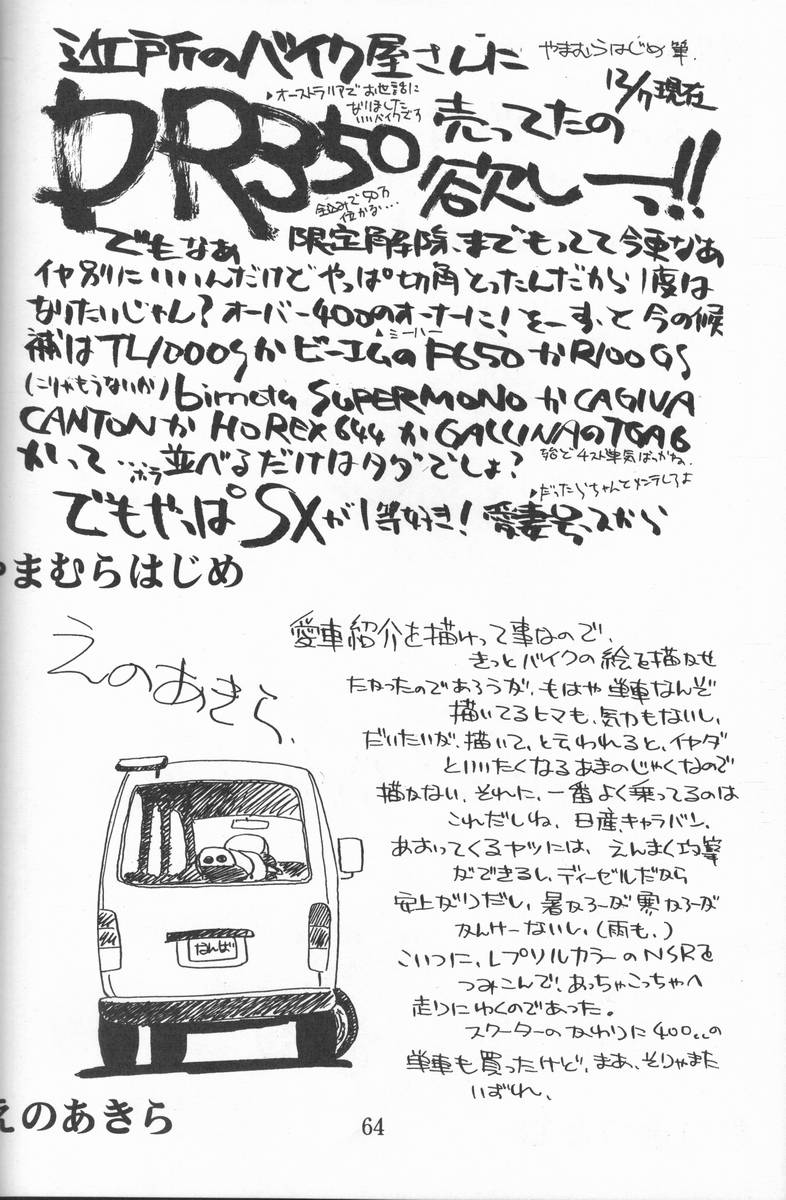 近所のバイク屋さんに
やまむらはじめ 筆.
12/17現在
オーストラリアでお世話に
なりました
いいバイクです
DR350 売ってたの
欲しーっ!!
全込みで50万
位かな…
でもなぁ 限定解除、までもってて今更なぁ
イヤ別にいいんだけどやっぱ切角とったんだから1度は
なりたいじゃん?オーバー400のオーナーに!そーす、と今の候
ミーハー
補はTL1000SかビーエムのF650かR100GS
(こりゃもうないか)bimota SUPERMONOかCAGIVA
CANYONかHOREX644かGALLINAのTGA6
かって…ホラ並べるだけはタダでしょ?
だったらちゃんとメンテしろよ
でもやっぱSXが1等好き!愛妻号っスから
やまむらはじめ
えのあきら、
愛車紹介を描けって事なので、
きっとバイクの絵を描かせ
たかったのであろうが、もはや単車なんぞ
描いてるヒマも、気力もないし、
だいたいが、描いて、と云われると、イヤダ
といいたくなるあまのじゃくなので
描かない、それに、一番よく乗ってるのは
これだしね、日産、キャラバン、
あおってくるヤツには、えんまく攻撃
ができるし、ディーゼルだから
安上がりだし、暑かろーが寒かろーが
かんけーないし、(雨も、)
こいつに、レプソルカラーのNSRを
つみこんで、あっちゃこっちゃへ
走りにゆくのであった。
スクーターのかわりに400ccの
単車も買ったけど、まあ、そりゃまた
いずれ、
なんば
えのあきら
64